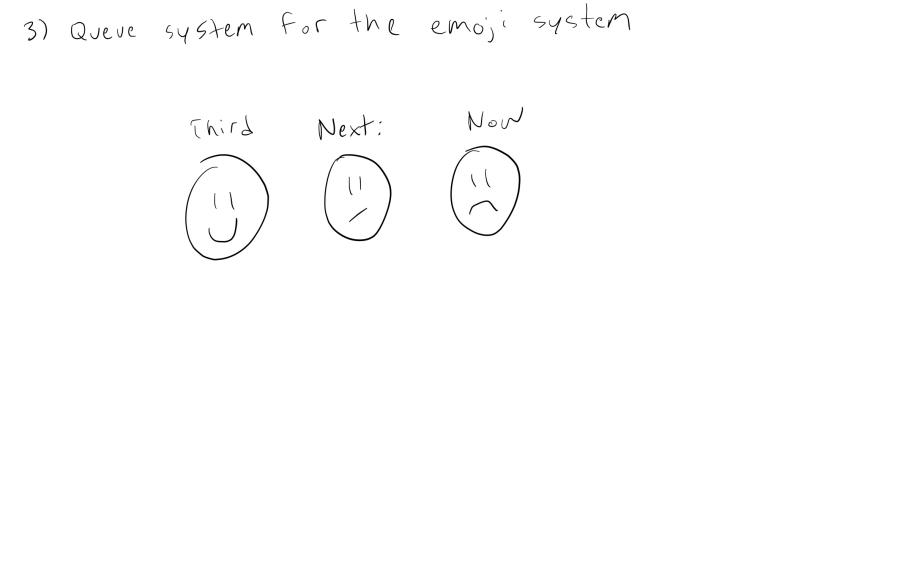 3) Queue system for the emoji system
Third Next: Now